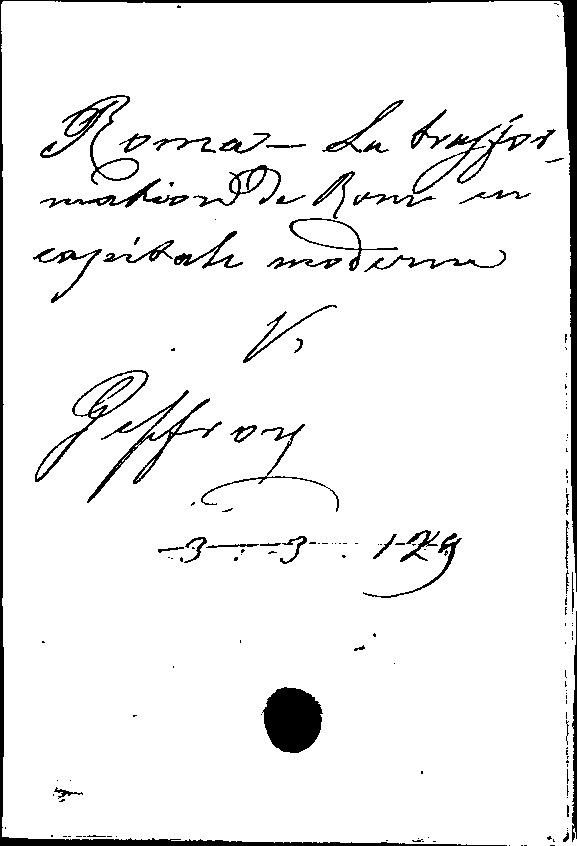 Roma - La trasfor-
mation de Rome en
capitale moderne
V.
Geffroy
3 - 3 129